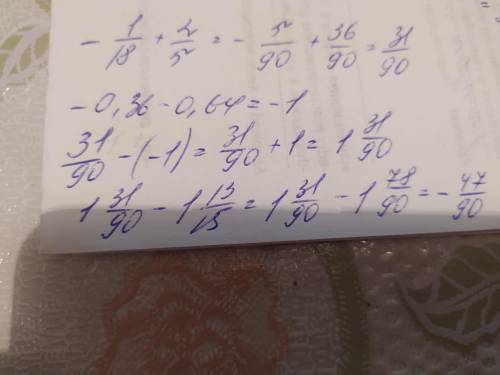 - 1/18 + 2/5 = - 5/90 + 36/90 = 31/90
- 0,36 - 0,64 = - 1
31/90 - (-1) = 31/90 + 1 = 1 31/90
1 31/90 - 1 13/15 = 1 31/90 - 1 78/90 = - 47/90